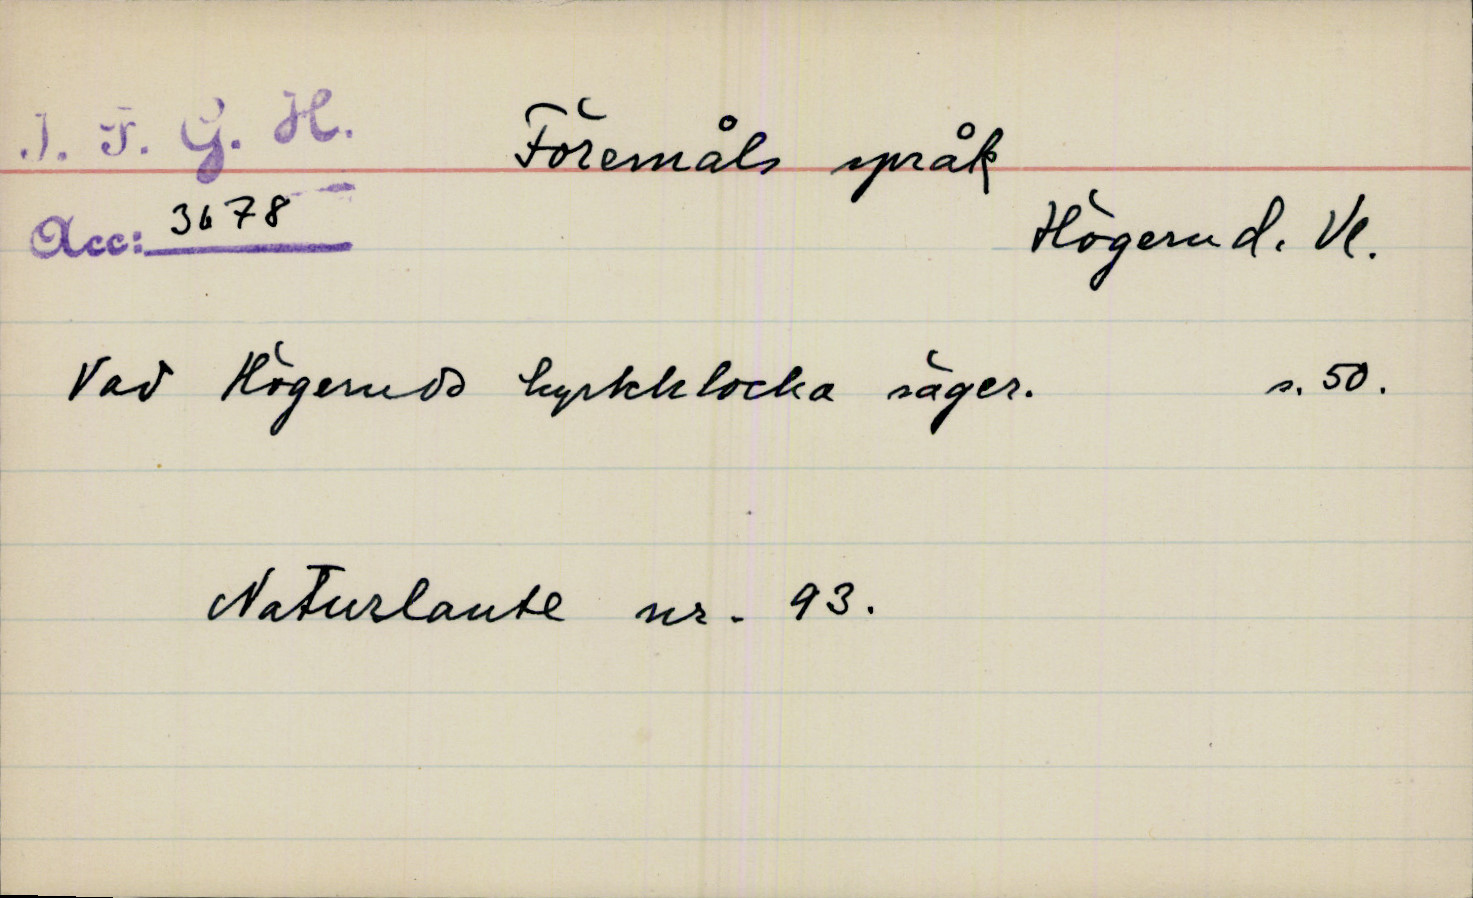 I. F. G. H.
Föremåls språk
Acc: 3678
Högerud. Vl.
Vad Högeruds kyrkklocka säger. s. 50.
Naturlaute nr. 93.